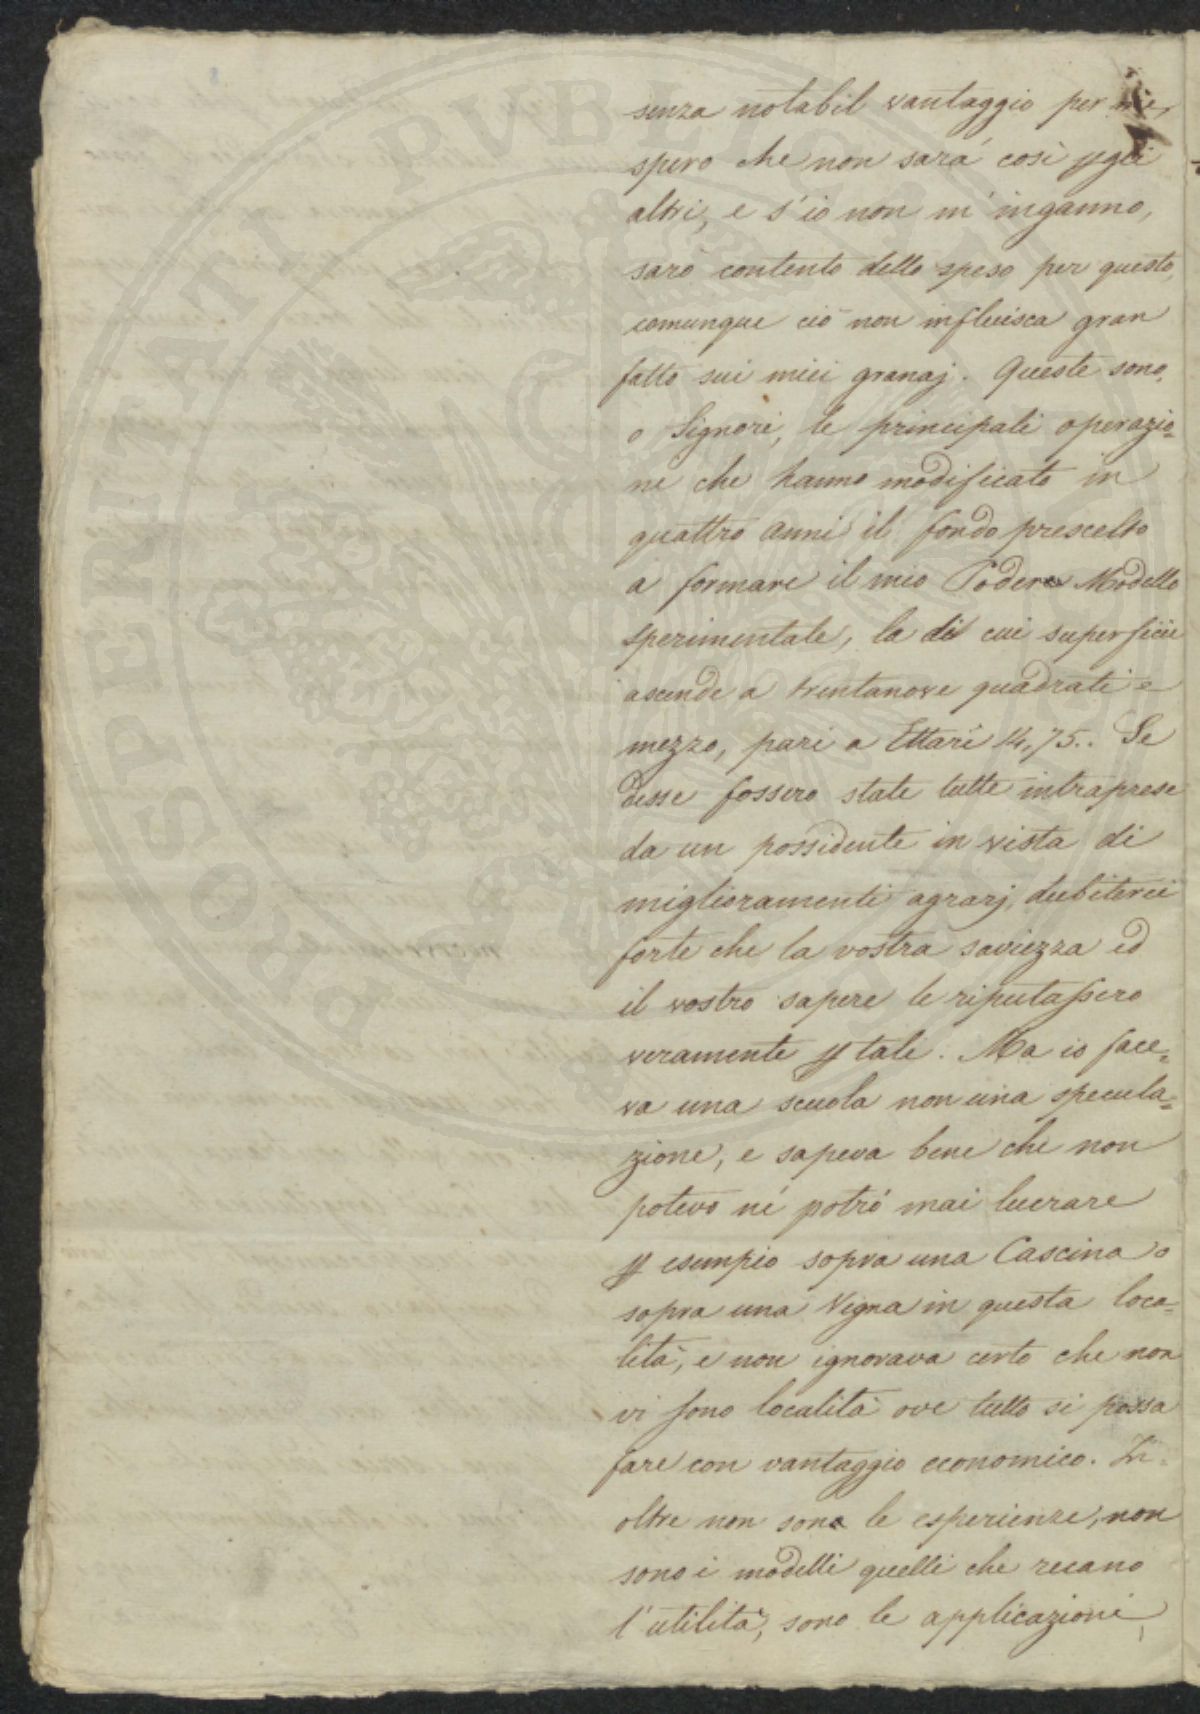 senza notabil vantaggio per me,
spero che non sarà così pgli
altri, e s'io non m'inganno,
sarò contento dello speso per questo,
comunque ciò non influisca gran
fatto sui miei granaj. Queste sono,
o Signori, le principali operazio=
ni che hanno modificato in
quattro anni il fondo prescelto
a formare il mio Podere Modello
sperimentale, la di cui superficie
ascende a trentanove quadrati e
mezzo, pari a Ettari 14,75.. Se
desse fossero state tutte intraprese
da un possidente in vista di
miglioramenti agrarj, dubiterei
forte che la vostra saviezza ed
il vostro sapere le riputassero
veramente p tali. Ma io face=
va una scuola non una specula=
zione, e sapeva bene che non
potevo né potrò mai lucrare
p esempio sopra una Cascina o
sopra una Vigna in questa loca=
lità, e non ignorava certo che non
vi sono località ove tutto si possa
fare con vantaggio economico. In=
oltre non sono le esperienze, non
sono i modelli quelli che recano
l'utilità, sono le applicazioni,
PROSPERITATI PVBLICAE